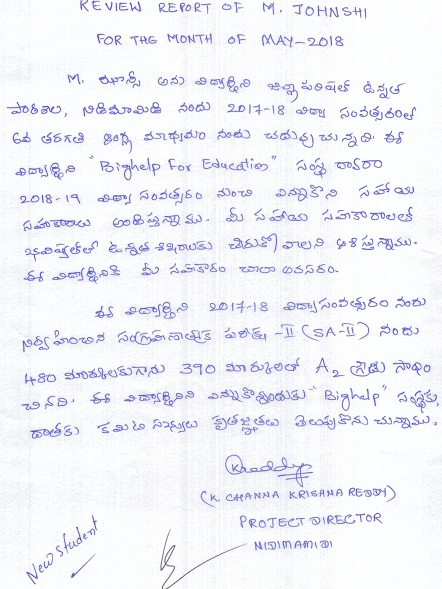 REVIEW REPORT OF M. JOHNSHI
FOR THE MONTH OF MAY-2018
M. ఝాన్సీ అను విద్యార్థిని జిల్లా పరిషత్ ఉన్నత
పాఠశాల, నిడిమామిడి నందు 2017-18 విద్యా సంవత్సరంలో
6వ తరగతి ఆంగ్ల మాధ్యమం నందు చదువుచున్నది. ఈ
విద్యార్థిని "Bighelp For Education" సంస్థ ద్వారా
2018-19 విద్యా సంవత్సరం నుంచి ఎన్నుకొని సహాయ
సహకారాలు అందిస్తున్నాము. మీ సహాయ సహకారాలతో
భవిష్యత్‌లో ఉన్నత శిఖరాలకు చేరుకోవాలని ఆశిస్తున్నాము.
ఈ విద్యార్థినికి మీ సహకారం చాలా అవసరం.
ఈ విద్యార్థిని 2017-18 విద్యాసంవత్సరం నందు
నిర్వహించిన సంగ్రహణాత్మక పరీక్ష -II (SA-II) నందు
480 మార్కులకుగాను 390 మార్కులతో A2 గ్రేడు సాధిం
చినది. ఈ విద్యార్థినిని ఎన్నుకొన్నందుకు "Bighelp" సంస్థకు,
దాతకు కమిటి సభ్యులు కృతజ్ఞతలు తెలుపుకొనుచున్నాము.
(K. CHANNA KRISHNA REDDY)
PROJECT DIRECTOR
NIDIMAMIDI
New Student